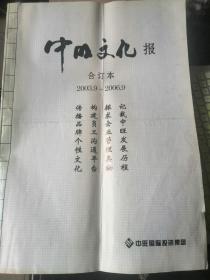 中旺文化 报
合订本
2003.9—2006.9
记载中旺发展历程
探求企业管理
构建员工沟通平台
传播品牌个性文化
中旺国际投资集团